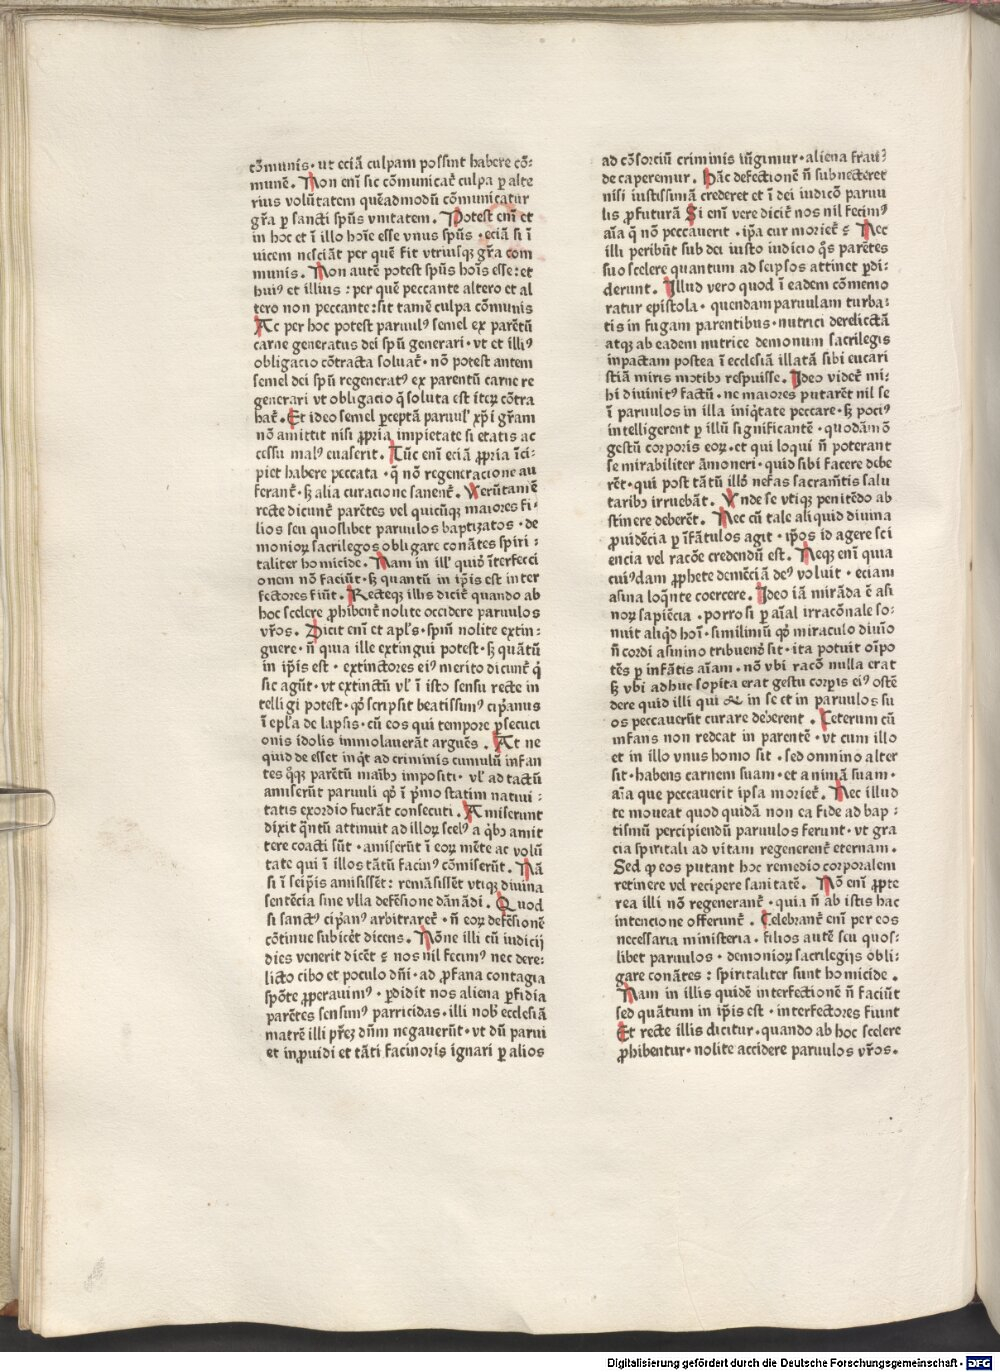 cōmunis· ut eciā culpam possint habere cō-
munē. Non eni̅ sic cōmunicat᷑ culpa ꝑ alte
rius volūtatem quēadmodū cōmunicatur
gr̄a ꝑ sancti spūs vnitatem. Potest eni̅ et
in hoc et ī illo hoīe esse vnus spūs· eciā si ī
uicem nesciāt per quē fit vtriusqꝫ gr̄a com
munis. Non autē potest spūs hoīs esse: et
huiꝰ et illius: per quē peccante altero et al
tero non peccante: sit tamē culpa cōmunis
Ac per hoc potest paruulꝰ semel ex parētū
carne generatus dei spū generari· vt et illiꝰ
obligacio cōtracta soluat᷑· nō potest antem
semel dei spū regeneratꝰ ex parentū carne re
generari vt obligacio q̄ soluta est iteꝝ cōtra
hat᷑. Et ideo semel ꝑceptā paruul᷑ xp̄i gr̄am
nō amittit nisi ꝓpria impietate si etatis ac
cessu malꝰ euaserit. Tūc eni̅ eciā ꝓpria īci-
piet habere peccata· q̄ nō regeneracione au
ferant᷑· sꝫ alia curacione sanent᷑. Verūtamē
recte dicunt᷑ parētes vel quicūqꝫ maiores fi-
lios seu quoslibet paruulos baptizatos· de
monioꝝ sacrilegos obligare conātes spiri-
taliter homicide. Nam in ill᷑ quid̄ īterfecci
onem nō faciūt· sꝫ quantū in ip̄is est inter
fectores fiūt. Recteqꝫ illis dicit᷑ quando ab
hoc scelere ꝓhibent᷑ nolite occidere paruulos
vr̄os. Dicit eni̅ et apl̄s· spm̄ nolite extin-
guere· n̄ qua ille extingui potest· sꝫ quātū
in ip̄is est· extinctores eiꝰ merito dicunt᷑ q̇
sic agūt· vt extinctū vl᷑ ī isto sensu recte in
telligi potest· qd̄ scripsit beatissimꝰ cip̄anus
ī epl̄a de lapsis· cū eos qui tempore ꝑsecuci
onis idolis immolauerāt arguēs. At ne
quid de esset inq̇t ad criminis cumulū infan
tes qꝫ parētū maībꝰ impositi· vl᷑ ad tactū
amiserūt paruuli qd̄ ī ṗmo statim natiui-
tatis exordio fuerāt consecuti. Amiserunt
dixit q̄ntū attinuit ad illoꝝ scelꝰ a q̇bꝰ amit
tere coacti sūt· amiserūt ī eoꝝ mēte ac volū
tate qui ī illos tātū facinꝰ cōmiserūt. Nā
si ī seip̄is amisissēt: remāsissēt vtiqꝫ diuina
sentēcia sine vlla defēsione dānādi. Quod
si sanctꝰ cip̄anꝰ arbitraret᷑· n̄ eoꝝ defēsionē
cōtinue subicēt dicens. Nōne illi cū iudicij
dies venerit dicēt ꝛ nos nil fecimꝰ nec dere-
licto cibo et poculo dn̄i· ad ꝓfana contagia
spōte ꝓperauimꝰ· ꝑdidit nos aliena ꝑfidia
parētes sensimꝰ parricidas· illi nob᷑ ecclesiā
matrē illi pr̄eꝫ dn̄m negauerūt· vt dū parui
et inꝓuidi et tāti facinoris ignari ꝑ alios
ad cōsorciū criminis iūgimur· aliena frau-
de caperemur. Hāc defectionē n̄ subnecteret
nisi iustissimā crederet et ī dei iudicō paruu
lis ꝓfuturā Si eni̅ vere dicit᷑ nos nil fecimꝰ
aīa q̄ nō peccauerit· ip̄a cur moriet᷑ ꝛ Nec
illi peribūt sub dei iusto iudicio q̊s parētes
suo scelere quantum ad seipsos attinet ꝑdi-
derunt. Illud vero quod ī eadem cōmemo
ratur epistola· quendam paruulam turba-
tis in fugam parentibus· nutrici derelictā
atqꝫ ab eadem nutrice demonum sacrilegis
inpactam postea ī ecclesiā illatā sibi eucari
stiā miris motibꝰ respuisse. Ideo videt᷑ mi-
hi diuinitꝰ factū· ne maiores putarēt nil se
ī paruulos in illa iniq̇tate peccare· sꝫ pociꝰ
intelligerent ꝑ illū significantē· quodāmō
gestū corporis eoꝝ· et qui loqui n̄ poterant
se mirabiliter āmoneri· quid sibi facere debe
rēt· qui post tātū illd̄ nefas sacram̄tis salu
taribꝰ irruebāt. Vnde se vtiqꝫ penitēdo ab
stinere deberēt. Nec cū tale aliquid diuina
ꝓuidēcia ꝑ īfātulos agit· ip̄os id agere sci
encia vel racōe credendū est. Neqꝫ eni̅ quia
cuiꝰdam ꝓphete demēciā deꝰ voluit· eciam
asina loq̄nte coercere. Ideo iā mirāda ē asi
noꝝ sapiēcia· porro si ꝑ aīal irracōnale so-
nuit aliq̇d hoī· similimū qd̄ miraculo diuīo
n̄ cordi asinino tribuend̄ sit· ita potuit oīpo
tēs ꝑ infātis aīam· nō vbi racō nulla erat
sꝫ vbi adhuc sopita erat gestu corꝑis eiꝰ ostē
dere quid illi qui & in se et in paruulos su
os peccauerūt curare deberent. Ceterum cū
infans non redeat in parentē· vt cum illo
et in illo vnus homo sit· sed omnino alter
sit· habens carnem suam· et animā suam·
aīa que peccauerit ipsa moriet᷑. Nec illud
te moueat quod quidā non ea fide ad bap-
tismū percipiendū paruulos ferunt· vt gra
cia spiritali ad vitam regenerent᷑ eternam.
Sed qꝫ eos putant hoc remedio corporalem
retinere vel recipere sanitatē. Nō eni̅ ꝓpte
rea illi nō regenerant᷑· quia n̄ ab istis hac
intencione offerunt᷑. Celebrant᷑ eni̅ per eos
necessaria ministeria· filios autē seu quos-
libet paruulos· demonioꝝ sacrilegijs obli-
gare conātes: spiritaliter sunt homicide.
Nam in illis quidē interfectionē n̄ faciūt
sed quātum in ip̄is est· interfectores fiunt
Et recte illis dicitur· quando ab hoc scelere
ꝓhibentur· nolite accidere paruulos vr̄os.
Digitalisierung gefördert durch die Deutsche Forschungsgemeinschaft - DFG